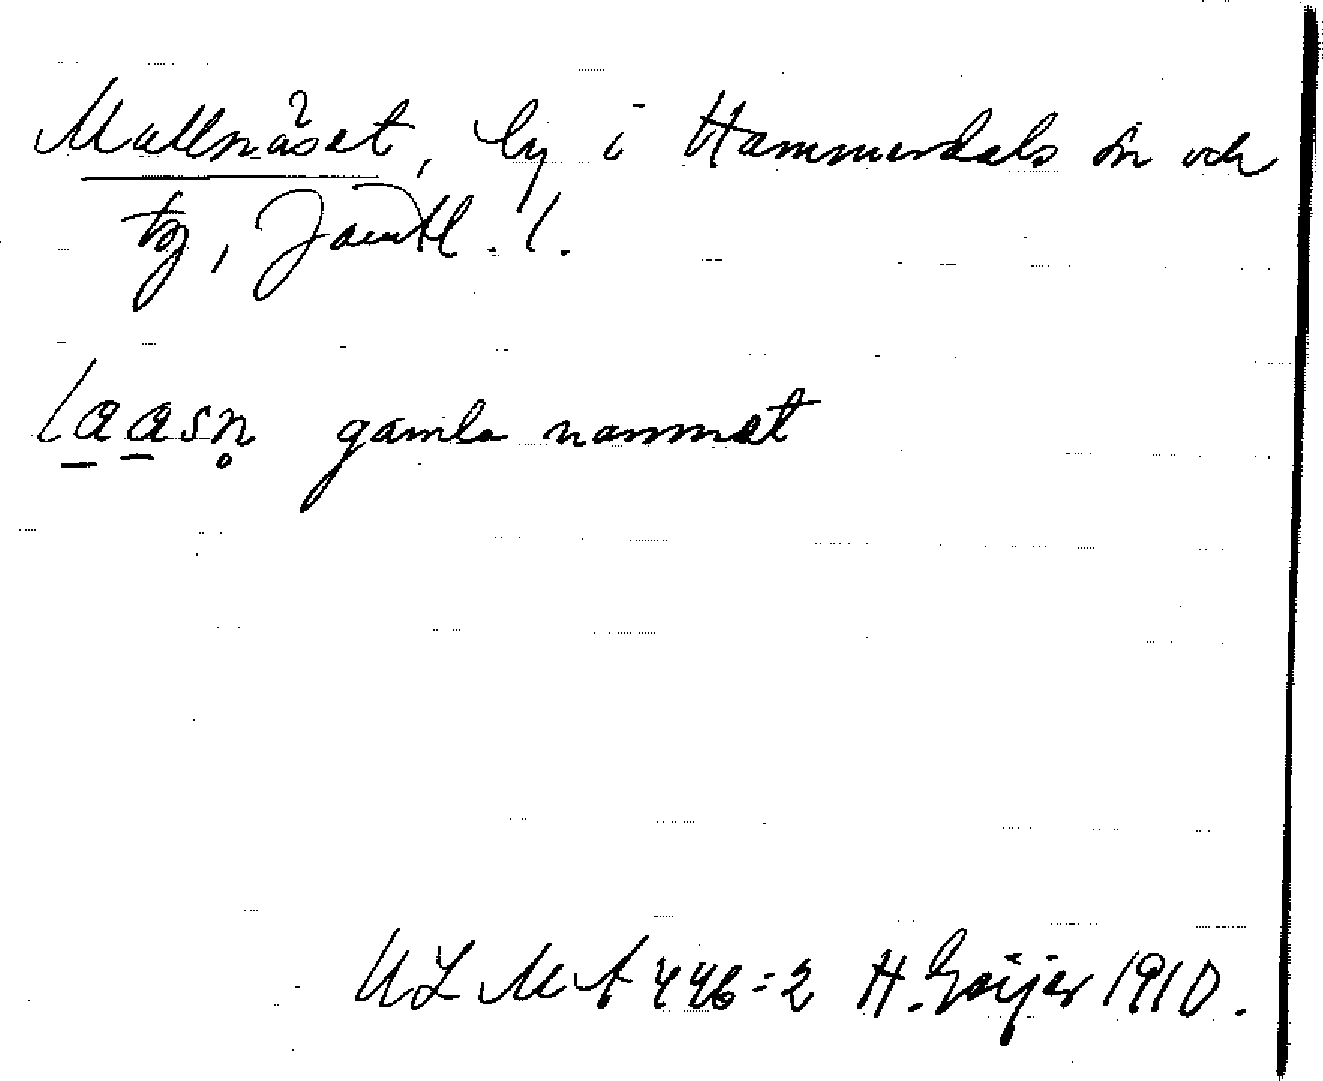 Mallnäset, by i Hammerdals sn och
tg, Jämtl. l.
laasn̥ gamla namnet
ULMA 446:2 H. Geijer 1910.